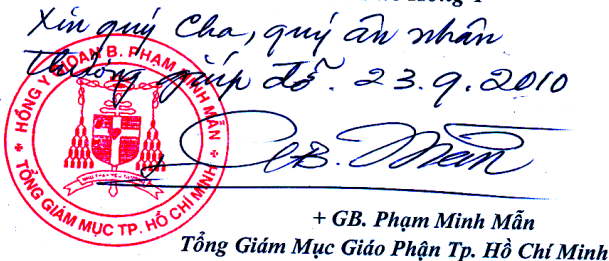 Xin quý Cha, quý ân nhân
thương giúp đỡ. 23.9.2010
HỒNG Y GIOAN B. PHẠM MINH MẪN
TỔNG GIÁM MỤC TP. HỒ CHÍ MINH
GB. Mẫn
+ GB. Phạm Minh Mẫn
Tổng Giám Mục Giáo Phận Tp. Hồ Chí Minh